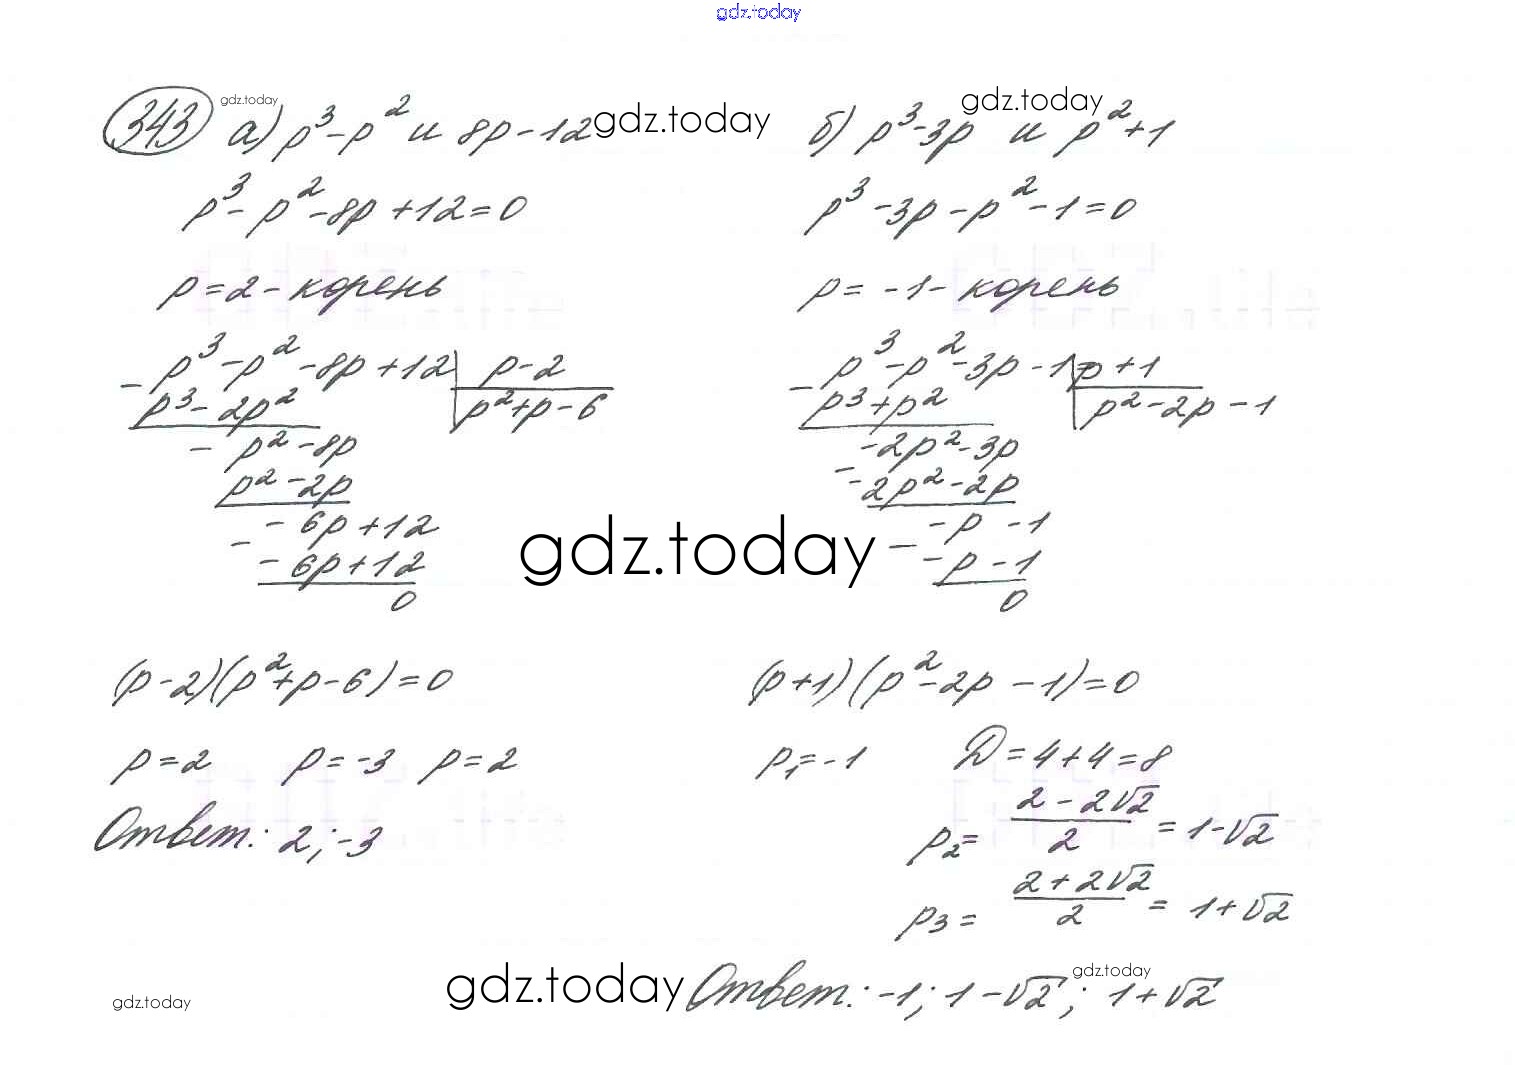 gdz.today
343 gdz.today а) p³-p² и 8p-12 gdz.today
p³-p²-8p+12=0
p=2- корень
- p³-p²-8p+12 | p-2
p³-2p² | p²+p-6
- p²-8p
p²-2p
- -6p+12
-6p+12
0
(p-2)(p²+p-6)=0
p=2 p=-3 p=2
Ответ: 2; -3
gdz.today б) p³-3p и p²+1
p³-3p-p²-1=0
p=-1- корень
- p³-p²-3p-1 | p+1
p³+p² | p²-2p-1
- -2p²-3p
-2p²-2p
- -p-1
-p-1
0
gdz.today
(p+1)(p²-2p-1)=0
p₁=-1 D=4+4=8
p₂= (2-2√2)/2 = 1-√2
p₃= (2+2√2)/2 = 1+√2
gdz.today Ответ: -1; 1-√2; 1+√2 gdz.today
gdz.today